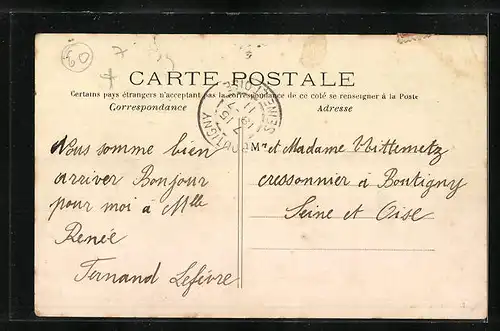 60
CARTE POSTALE
Certains pays étrangers n'acceptant pas la correspondance de ce coté se renseigner à la Poste
Correspondance
Adresse
BOUTIGNY
SEINE-ET-OISE
Nous somme bien
arriver Bonjour
pour moi à Mlle
Renée
Fernand Lefèvre
Mr et Madame Wittemetz
cressonnier à Boutigny
Seine et Oise